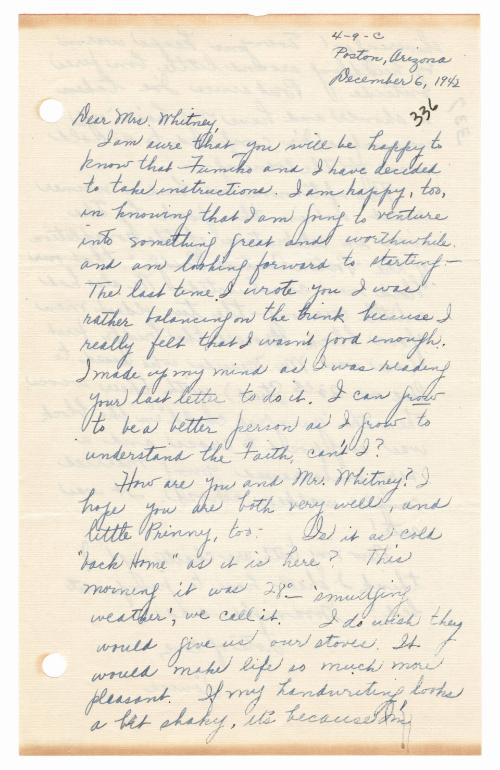 4-9-C
Poston, Arizona
December 6, 1942
336
Dear Mrs. Whitney,
I am sure that you will be happy to
know that Fumiko and I have decided
to take instructions. I am happy, too,
in knowing that I am going to venture
into something great and worthwhile.
and am looking forward to starting—
The last time I wrote you I was
rather balancing on the brink because I
really felt that I wasn't good enough.
I made up my mind as I was reading
your last letter to do it. I can grow
to be a better person as I grow to
understand the Faith, can't I?
How are you and Mr. Whitney? I
hope you are both very well, and
little Prinny, too— Is it as cold
"back Home" as it is here? This
morning it was 28°—
weather', we call it. I do wish they
would give us our stoves. It
would make life so much more
pleasant. If my handwriting looks
a bit shaky, it's because I'm